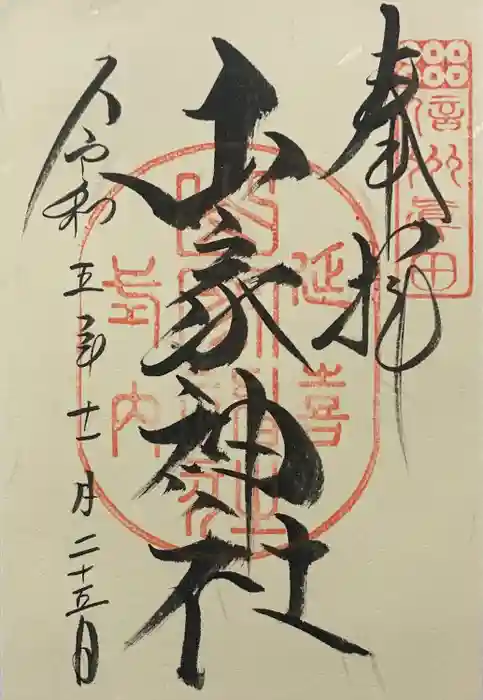 奉拝
信州真田
山家神社
延喜
式内
令和五年十一月二十五日